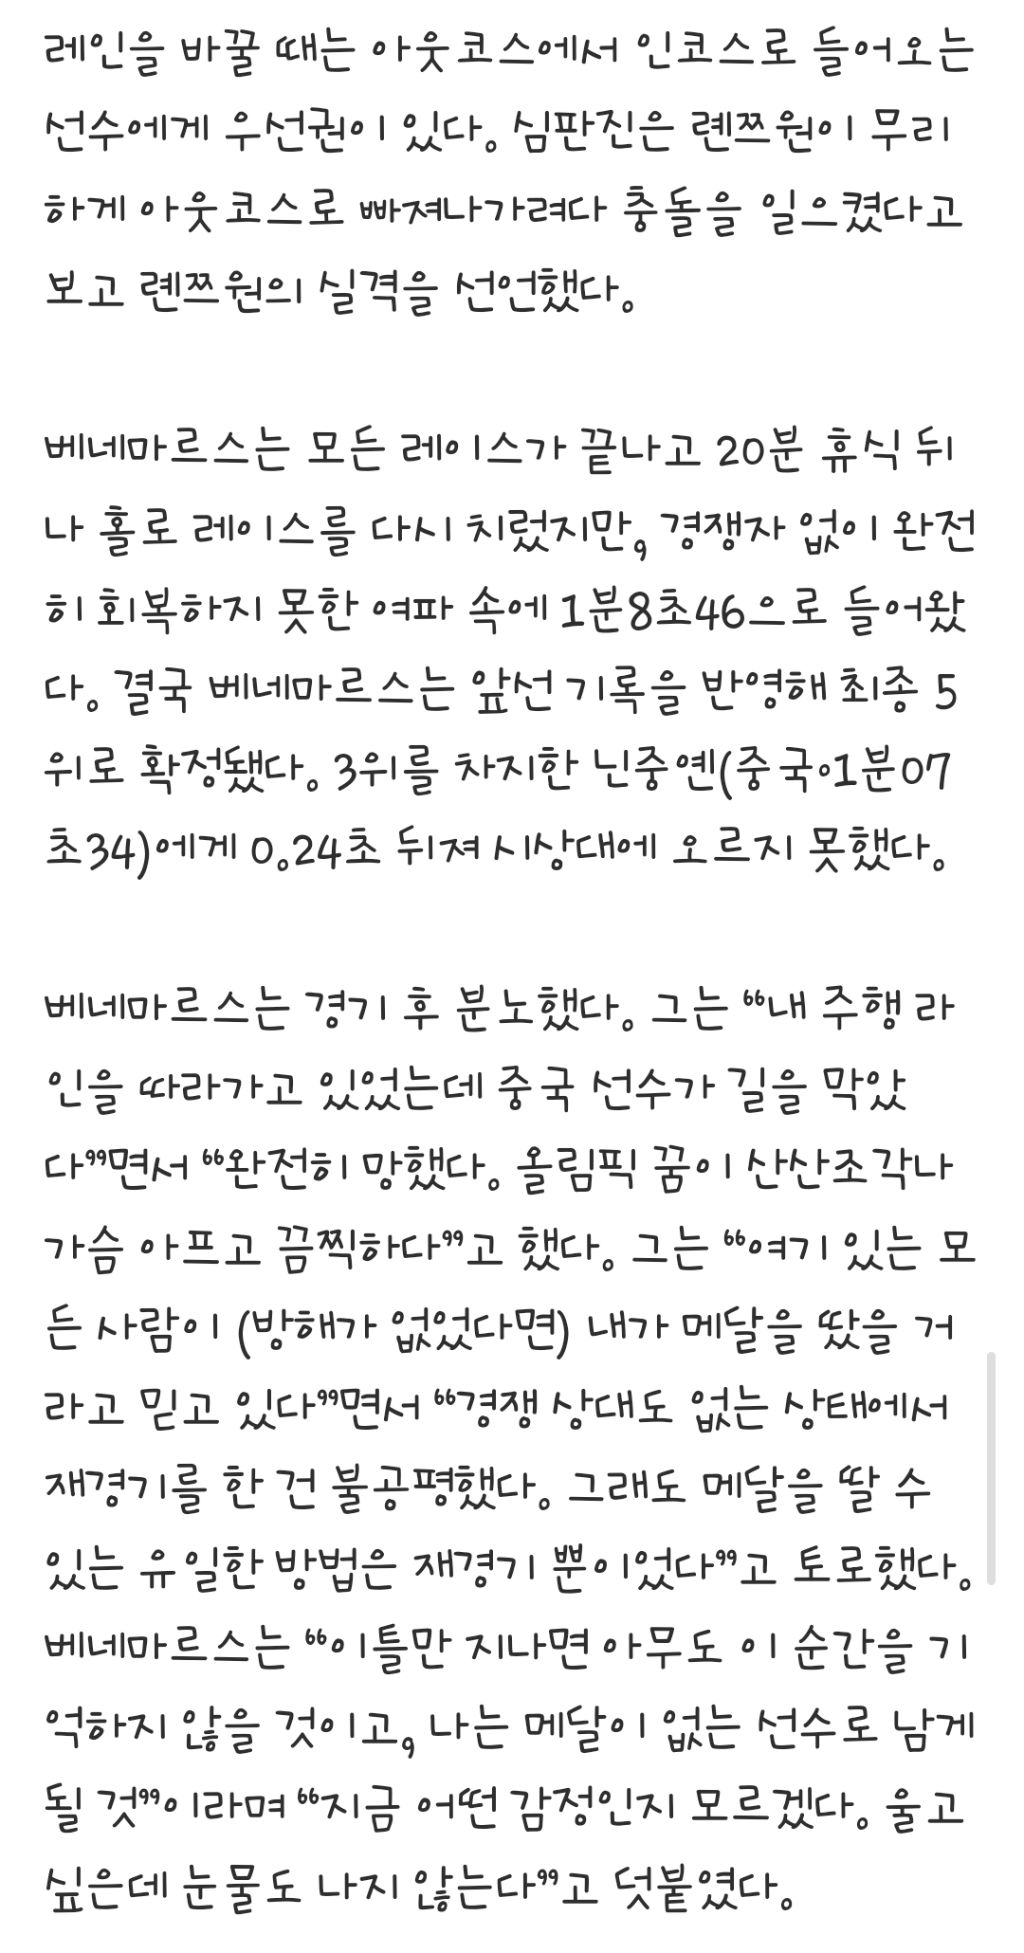 레인을 바꿀 때는 아웃코스에서 인코스로 들어오는
선수에게 우선권이 있다. 심판진은 롄쯔원이 무리
하게 아웃코스로 빠져나가려다 충돌을 일으켰다고
보고 롄쯔원의 실격을 선언했다.
베네마르스는 모든 레이스가 끝나고 20분 휴식 뒤
나 홀로 레이스를 다시 치렀지만, 경쟁자 없이 완전
히 회복하지 못한 여파 속에 1분8초46으로 들어왔
다. 결국 베네마르스는 앞선 기록을 반영해 최종 5
위로 확정됐다. 3위를 차지한 닌중옌(중국·1분07
초34)에게 0.24초 뒤져 시상대에 오르지 못했다.
베네마르스는 경기 후 분노했다. 그는 “내 주행 라
인을 따라가고 있었는데 중국 선수가 길을 막았
다”면서 “완전히 망했다. 올림픽 꿈이 산산조각나
가슴 아프고 끔찍하다”고 했다. 그는 “여기 있는 모
든 사람이 (방해가 없었다면) 내가 메달을 땄을 거
라고 믿고 있다”면서 “경쟁 상대도 없는 상태에서
재경기를 한 건 불공평했다. 그래도 메달을 딸 수
있는 유일한 방법은 재경기 뿐이었다”고 토로했다.
베네마르스는 “이틀만 지나면 아무도 이 순간을 기
억하지 않을 것이고, 나는 메달이 없는 선수로 남게
될 것”이라며 “지금 어떤 감정인지 모르겠다. 울고
싶은데 눈물도 나지 않는다”고 덧붙였다.